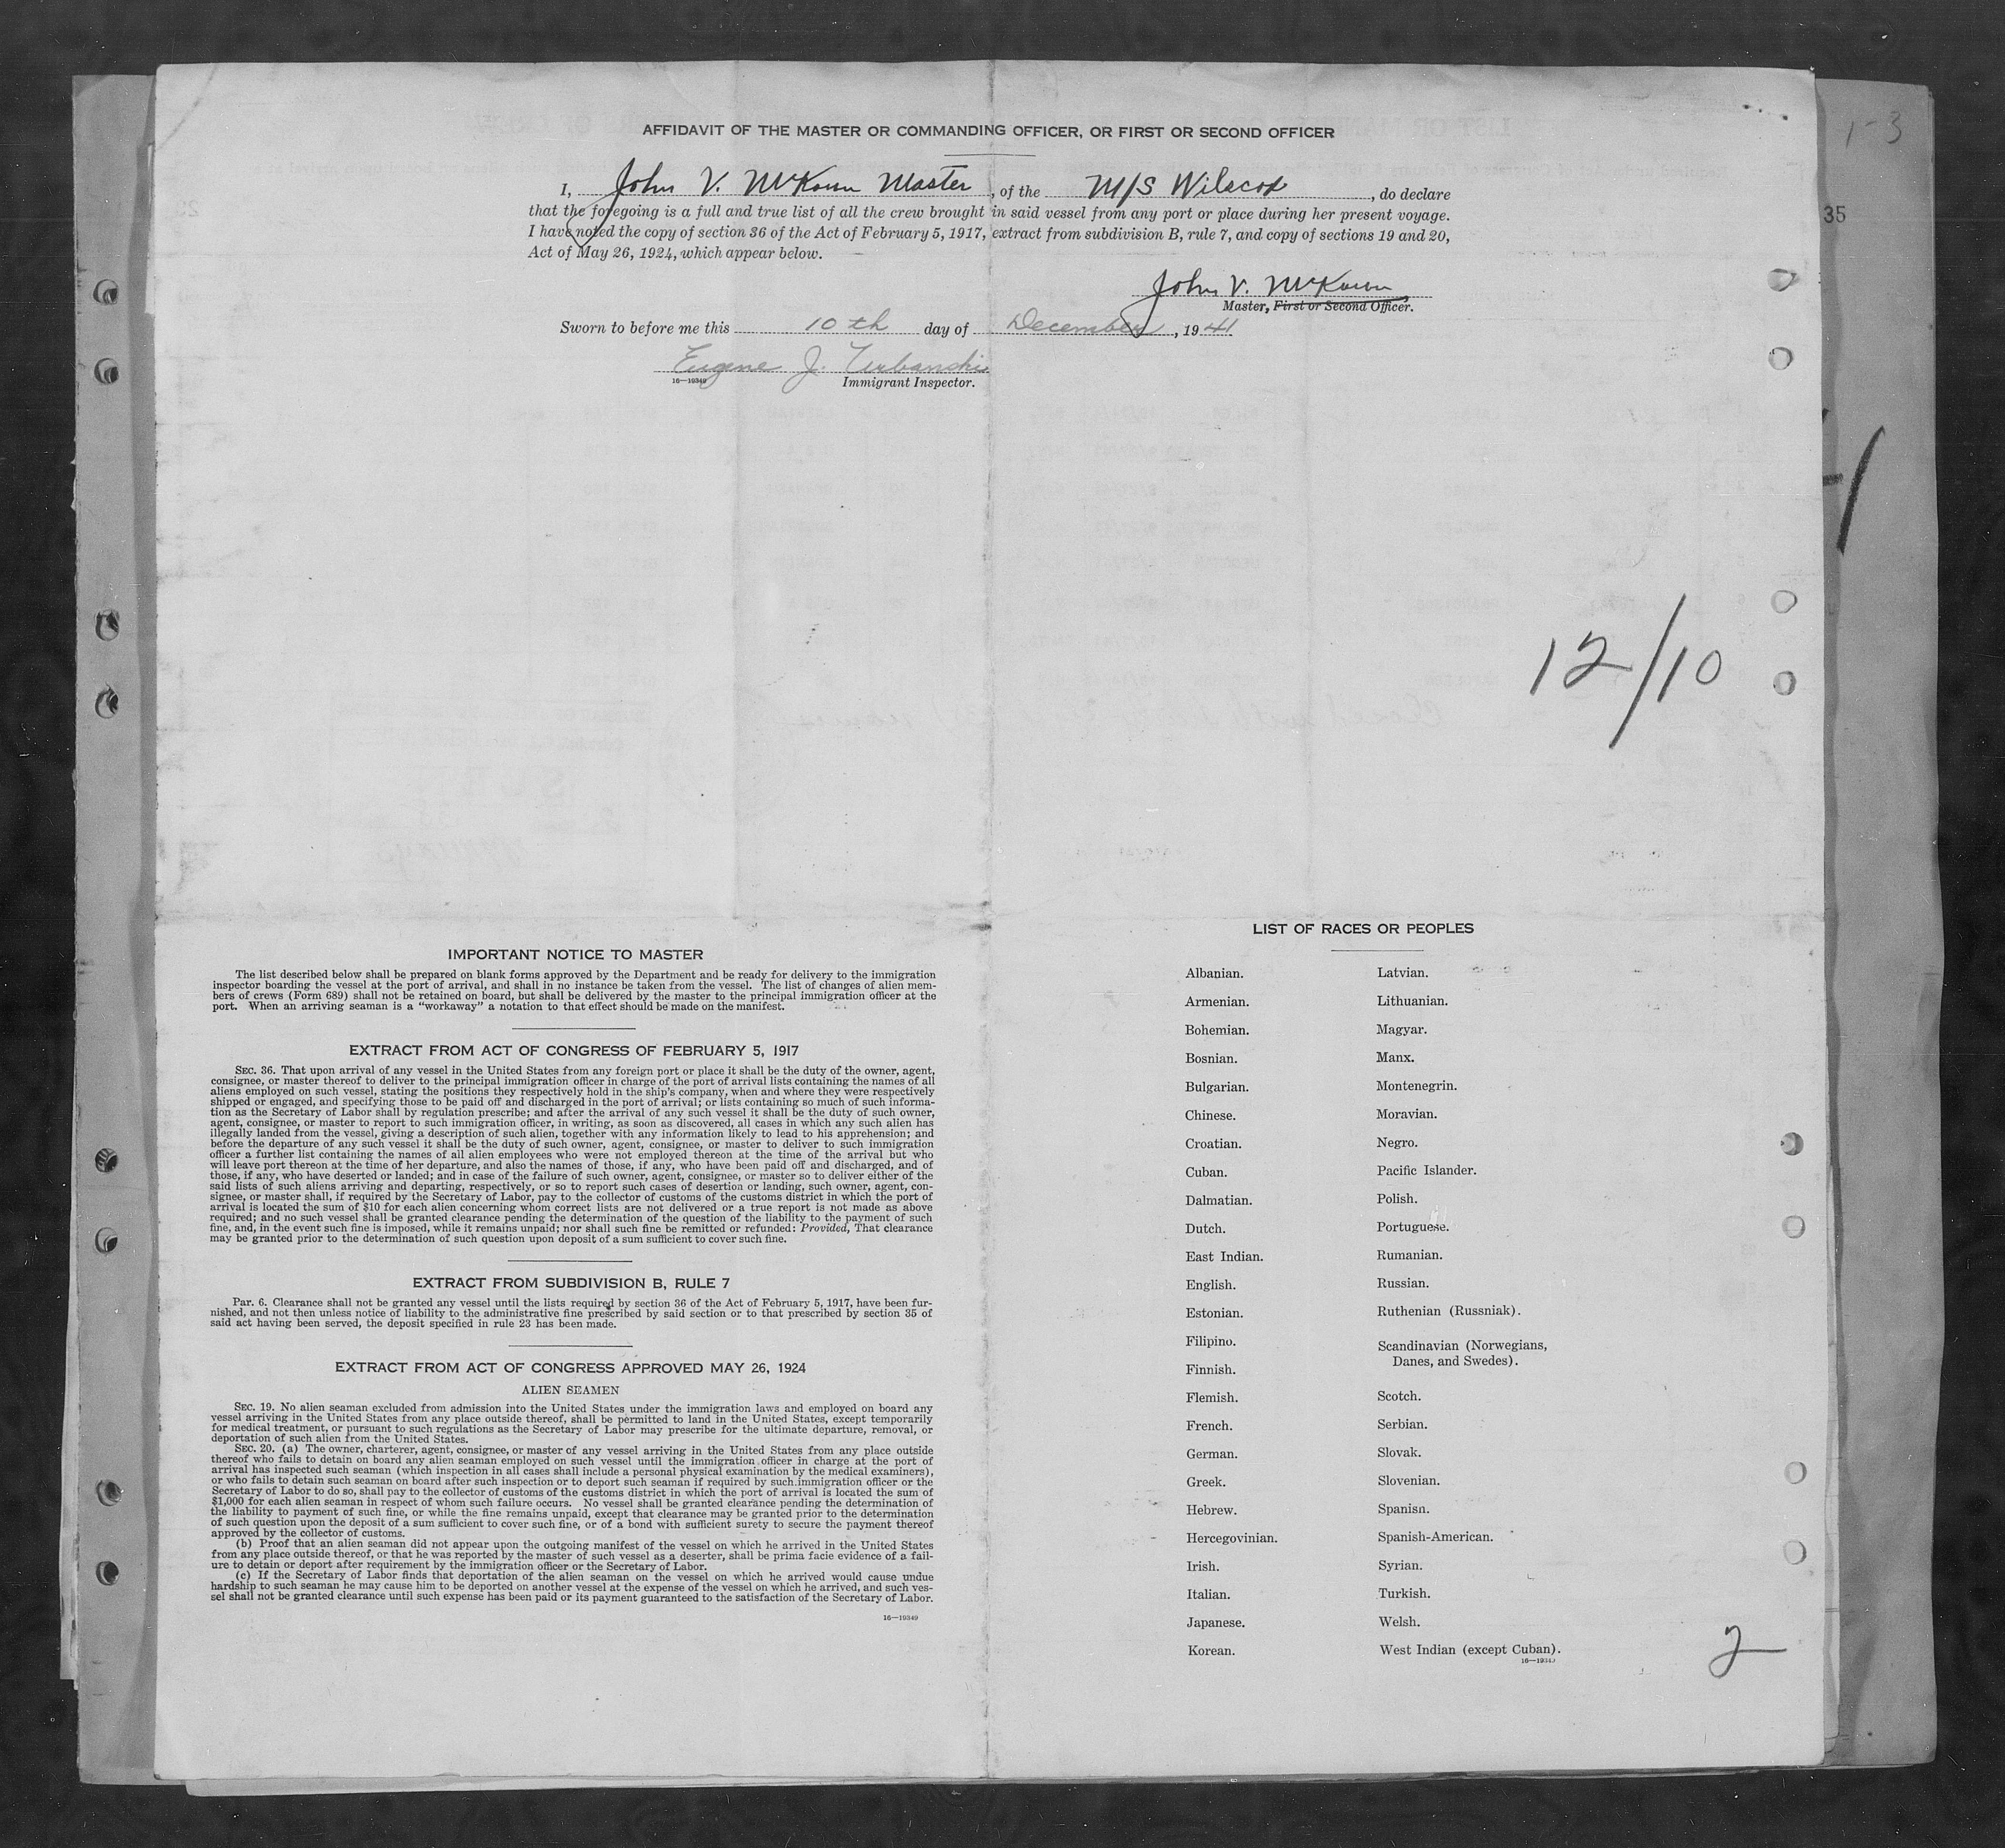 AFFIDAVIT OF THE MASTER OR COMMANDING OFFICER, OR FIRST OR SECOND OFFICER
I, John V. McKown Master, of the M/S Wilscox, do declare
that the foregoing is a full and true list of all the crew brought in said vessel from any port or place during her present voyage.
I have noted the copy of section 36 of the Act of February 5, 1917, extract from subdivision B, rule 7, and copy of sections 19 and 20,
Act of May 26, 1924, which appear below.
John V. McKown
Master, First or Second Officer.
Sworn to before me this 10th day of December, 1941
Eugene J. Urbanski
16—19349 Immigrant Inspector.
1-3
35
12/10
IMPORTANT NOTICE TO MASTER
The list described below shall be prepared on blank forms approved by the Department and be ready for delivery to the immigration
inspector boarding the vessel at the port of arrival, and shall in no instance be taken from the vessel. The list of changes of alien mem-
bers of crews (Form 689) shall not be retained on board, but shall be delivered by the master to the principal immigration officer at the
port. When an arriving seaman is a "workaway" a notation to that effect should be made on the manifest.
EXTRACT FROM ACT OF CONGRESS OF FEBRUARY 5, 1917
SEC. 36. That upon arrival of any vessel in the United States from any foreign port or place it shall be the duty of the owner, agent,
consignee, or master thereof to deliver to the principal immigration officer in charge of the port of arrival lists containing the names of all
aliens employed on such vessel, stating the positions they respectively hold in the ship's company, when and where they were respectively
shipped or engaged, and specifying those to be paid off and discharged in the port of arrival; or lists containing so much of such informa-
tion as the Secretary of Labor shall by regulation prescribe; and after the arrival of any such vessel it shall be the duty of such owner,
agent, consignee, or master to report to such immigration officer, in writing, as soon as discovered, all cases in which any such alien has
illegally landed from the vessel, giving a description of such alien, together with any information likely to lead to his apprehension; and
before the departure of any such vessel it shall be the duty of such owner, agent, consignee, or master to deliver to such immigration
officer a further list containing the names of all alien employees who were not employed thereon at the time of the arrival but who
will leave port thereon at the time of her departure, and also the names of those, if any, who have been paid off and discharged, and of
those, if any, who have deserted or landed; and in case of the failure of such owner, agent, consignee, or master so to deliver either of the
said lists of such aliens arriving and departing, respectively, or so to report such cases of desertion or landing, such owner, agent, con-
signee, or master shall, if required by the Secretary of Labor, pay to the collector of customs of the customs district in which the port of
arrival is located the sum of $10 for each alien concerning whom correct lists are not delivered or a true report is not made as above
required; and no such vessel shall be granted clearance pending the determination of the question of the liability to the payment of such
fine, and, in the event such fine is imposed, while it remains unpaid; nor shall such fine be remitted or refunded: Provided, That clearance
may be granted prior to the determination of such question upon deposit of a sum sufficient to cover such fine.
EXTRACT FROM SUBDIVISION B, RULE 7
Par. 6. Clearance shall not be granted any vessel until the lists required by section 36 of the Act of February 5, 1917, have been fur-
nished, and not then unless notice of liability to the administrative fine prescribed by said section or to that prescribed by section 35 of
said act having been served, the deposit specified in rule 23 has been made.
EXTRACT FROM ACT OF CONGRESS APPROVED MAY 26, 1924
ALIEN SEAMEN
SEC. 19. No alien seaman excluded from admission into the United States under the immigration laws and employed on board any
vessel arriving in the United States from any place outside thereof, shall be permitted to land in the United States, except temporarily
for medical treatment, or pursuant to such regulations as the Secretary of Labor may prescribe for the ultimate departure, removal, or
deportation of such alien from the United States.
SEC. 20. (a) The owner, charterer, agent, consignee, or master of any vessel arriving in the United States from any place outside
thereof who fails to detain on board any alien seaman employed on such vessel until the immigration officer in charge at the port of
arrival has inspected such seaman (which inspection in all cases shall include a personal physical examination by the medical examiners),
or who fails to detain such seaman on board after such inspection or to deport such seaman if required by such immigration officer or the
Secretary of Labor to do so, shall pay to the collector of customs of the customs district in which the port of arrival is located the sum of
$1,000 for each alien seaman in respect of whom such failure occurs. No vessel shall be granted clearance pending the determination of
the liability to payment of such fine, or while the fine remains unpaid, except that clearance may be granted prior to the determination
of such question upon the deposit of a sum sufficient to cover such fine, or of a bond with sufficient surety to secure the payment thereof
approved by the collector of customs.
(b) Proof that an alien seaman did not appear upon the outgoing manifest of the vessel on which he arrived in the United States
from any place outside thereof, or that he was reported by the master of such vessel as a deserter, shall be prima facie evidence of a fail-
ure to detain or deport after requirement by the immigration officer or the Secretary of Labor.
(c) If the Secretary of Labor finds that deportation of the alien seaman on the vessel on which he arrived would cause undue
hardship to such seaman he may cause him to be deported on another vessel at the expense of the vessel on which he arrived, and such ves-
sel shall not be granted clearance until such expense has been paid or its payment guaranteed to the satisfaction of the Secretary of Labor.
16—19349
LIST OF RACES OR PEOPLES
Albanian.
Armenian.
Bohemian.
Bosnian.
Bulgarian.
Chinese.
Croatian.
Cuban.
Dalmatian.
Dutch.
East Indian.
English.
Estonian.
Filipino.
Finnish.
Flemish.
French.
German.
Greek.
Hebrew.
Hercegovinian.
Irish.
Italian.
Japanese.
Korean.
Latvian.
Lithuanian.
Magyar.
Manx.
Montenegrin.
Moravian.
Negro.
Pacific Islander.
Polish.
Portuguese.
Rumanian.
Russian.
Ruthenian (Russniak).
Scandinavian (Norwegians,
Danes, and Swedes).
Scotch.
Serbian.
Slovak.
Slovenian.
Spanish.
Spanish-American.
Syrian.
Turkish.
Welsh.
West Indian (except Cuban).
16—19349
2